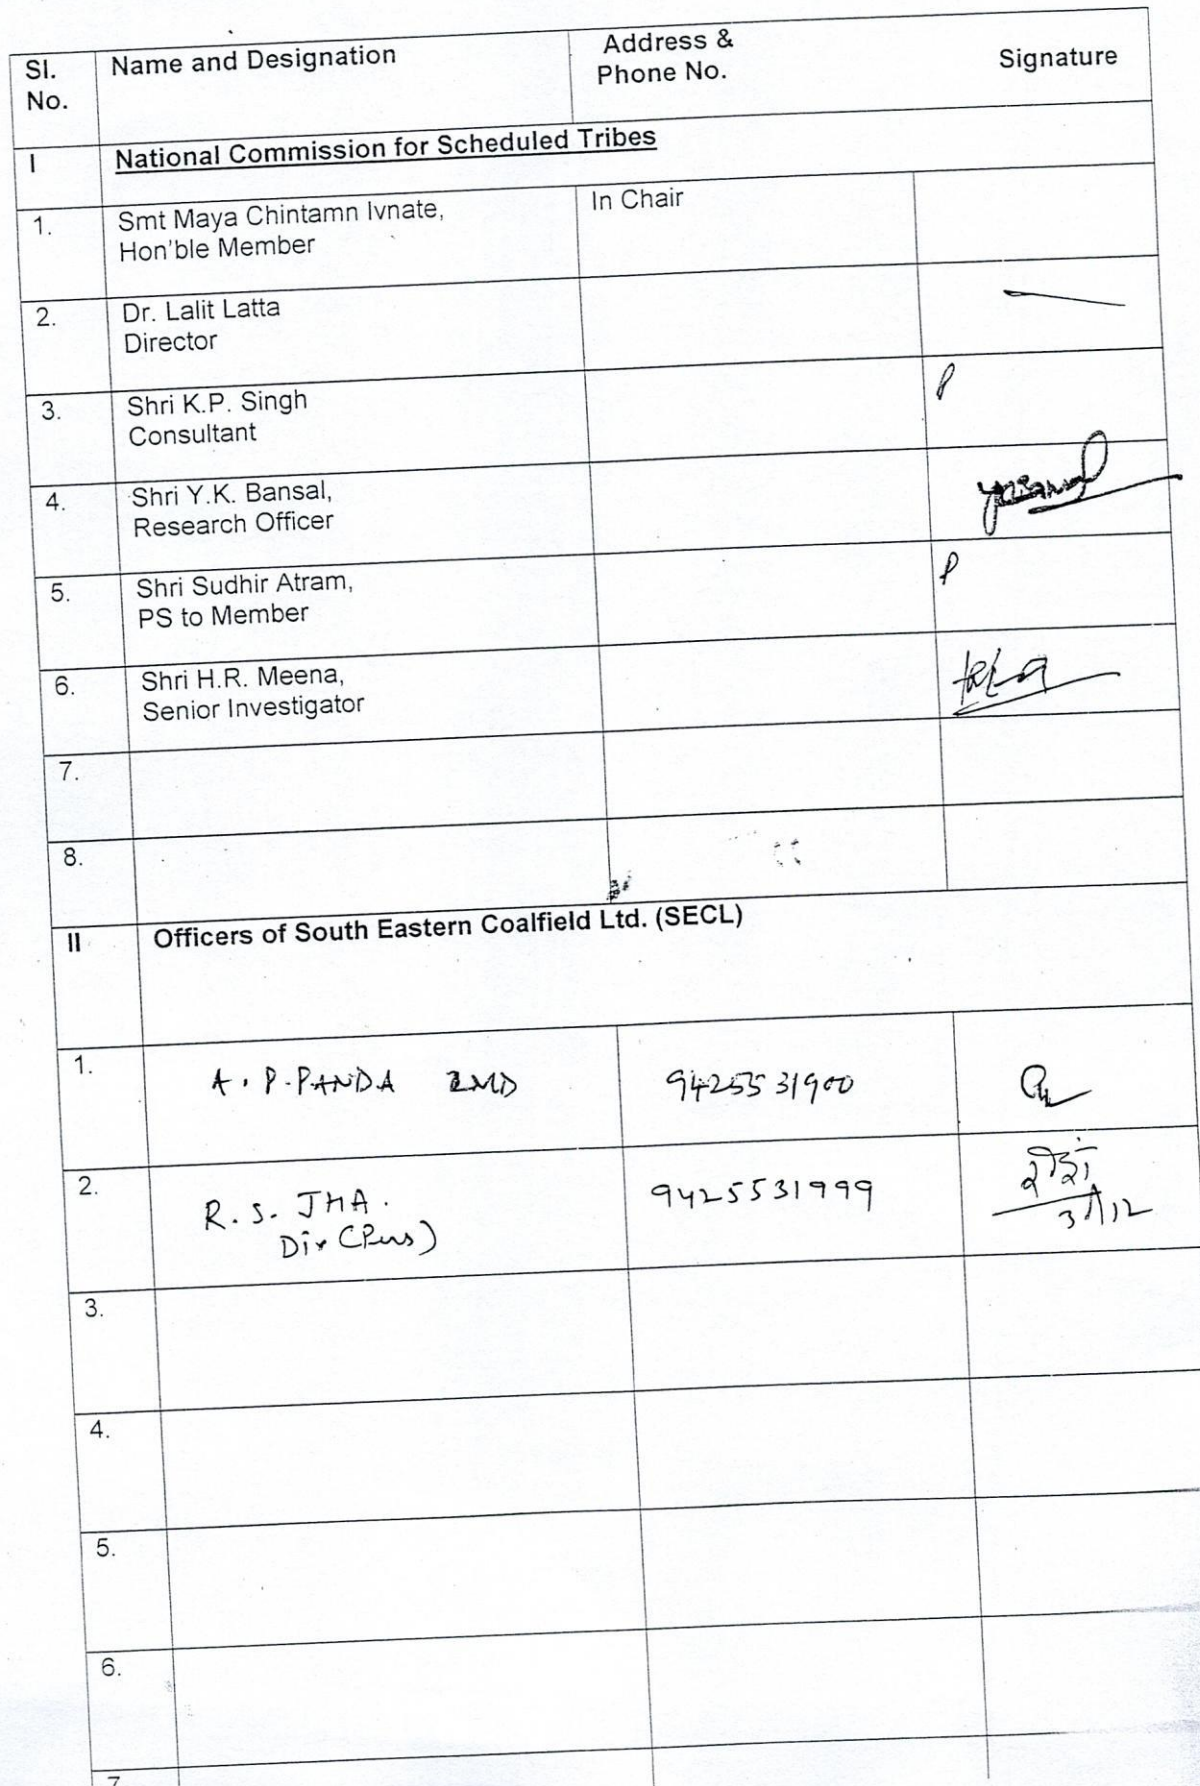 Sl. No.
Name and Designation
Address & Phone No.
Signature
I
National Commission for Scheduled Tribes
1.
Smt Maya Chintamn Ivnate,
Hon'ble Member
In Chair
2.
Dr. Lalit Latta
Director
3.
Shri K.P. Singh
Consultant
P
4.
Shri Y.K. Bansal,
Research Officer
5.
Shri Sudhir Atram,
PS to Member
P
6.
Shri H.R. Meena,
Senior Investigator
7.
8.
II
Officers of South Eastern Coalfield Ltd. (SECL)
1.
A. P. PANDA
9425531900
2.
R. S. JHA.
Dir (Pers)
9425531999
3.
4.
5.
6.
7